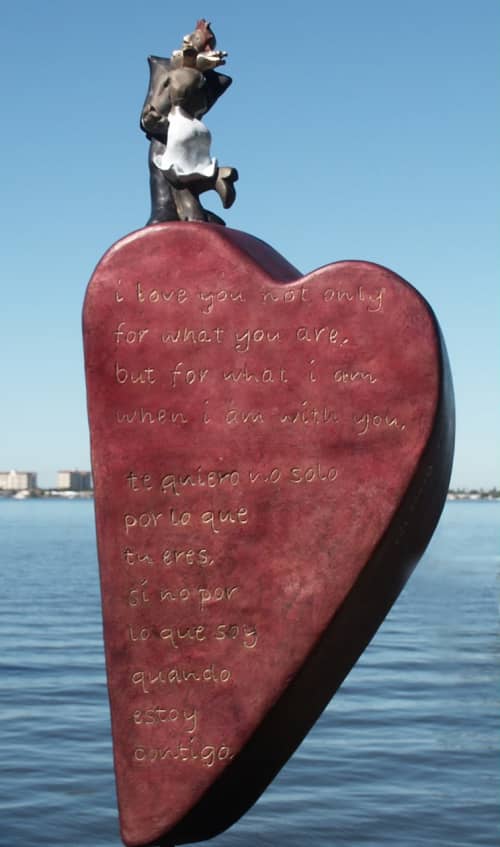 i love you not only
for what you are,
but for what i am
when i am with you.
te quiero no solo
por lo que
tu eres,
si no por
lo que soy
quando
estoy
contigo.